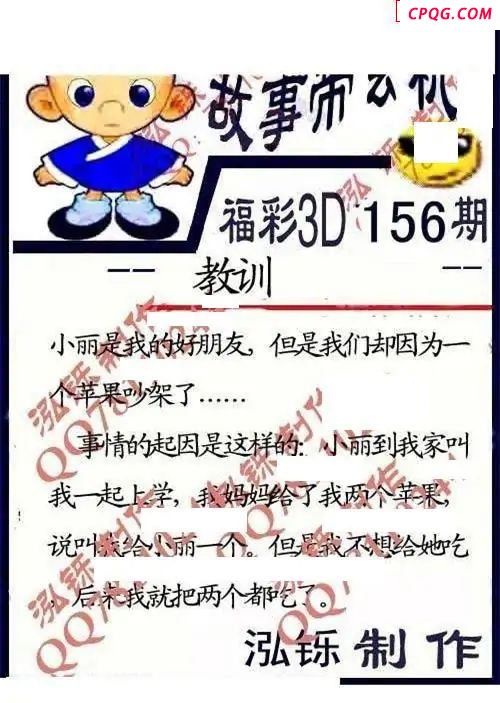 CPQG.COM
故事师玄机
福彩3D 156期
-- 教训 --
小丽是我的好朋友，但是我们却因为一
个苹果吵架了……
事情的起因是这样的：小丽到我家叫
我一起上学，我妈妈给了我两个苹果，
说叫我给小丽一个。但是我不想给她吃
，后来我就把两个都吃了。
泓铄制作